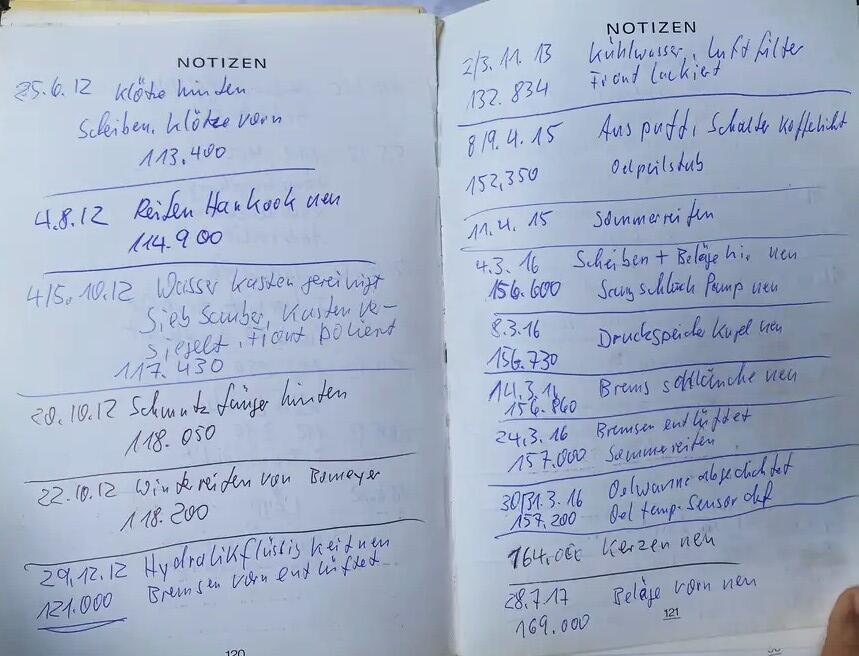 NOTIZEN
25.6.12 Klötze hinten
Scheiben, Klötze vorn
113.400
4.8.12 Reifen Hankook neu
114.900
4/5.10.12 Wasserkasten gereinigt
Sieb sauber, Kasten ver-
siegelt, Front poliert
117.430
20.10.12 Schmutzfänger hinten
118.050
22.10.12 Winterreifen von
118.200
29.12.12 Hydralikflüssigkeit neu
121.000 Bremsen vorn entlüftet
120
NOTIZEN
2/3.11.13 Kühlwasser, Luftfilter
132.834 Front lackiert
8/9.4.15 Auspuff, Schalter Kofferlicht
152,350 Oelpeilstab
11.4.15 Sommerreifen
4.3.16 Scheiben + Beläge hi. neu
156.600 Saugschlauch Pump neu
8.3.16 Druckspeicher Kugel neu
156.730
14.3.16 Bremsschläuche neu
156.860
24.3.16 Bremsen entlüftet
157.000 Sommerreifen
30/31.3.16 Oelwanne abgedichtet
157.200 Oeltemp. Sensor
164.000 Kerzen neu
28.7.17 Beläge vorn neu
169.000
121